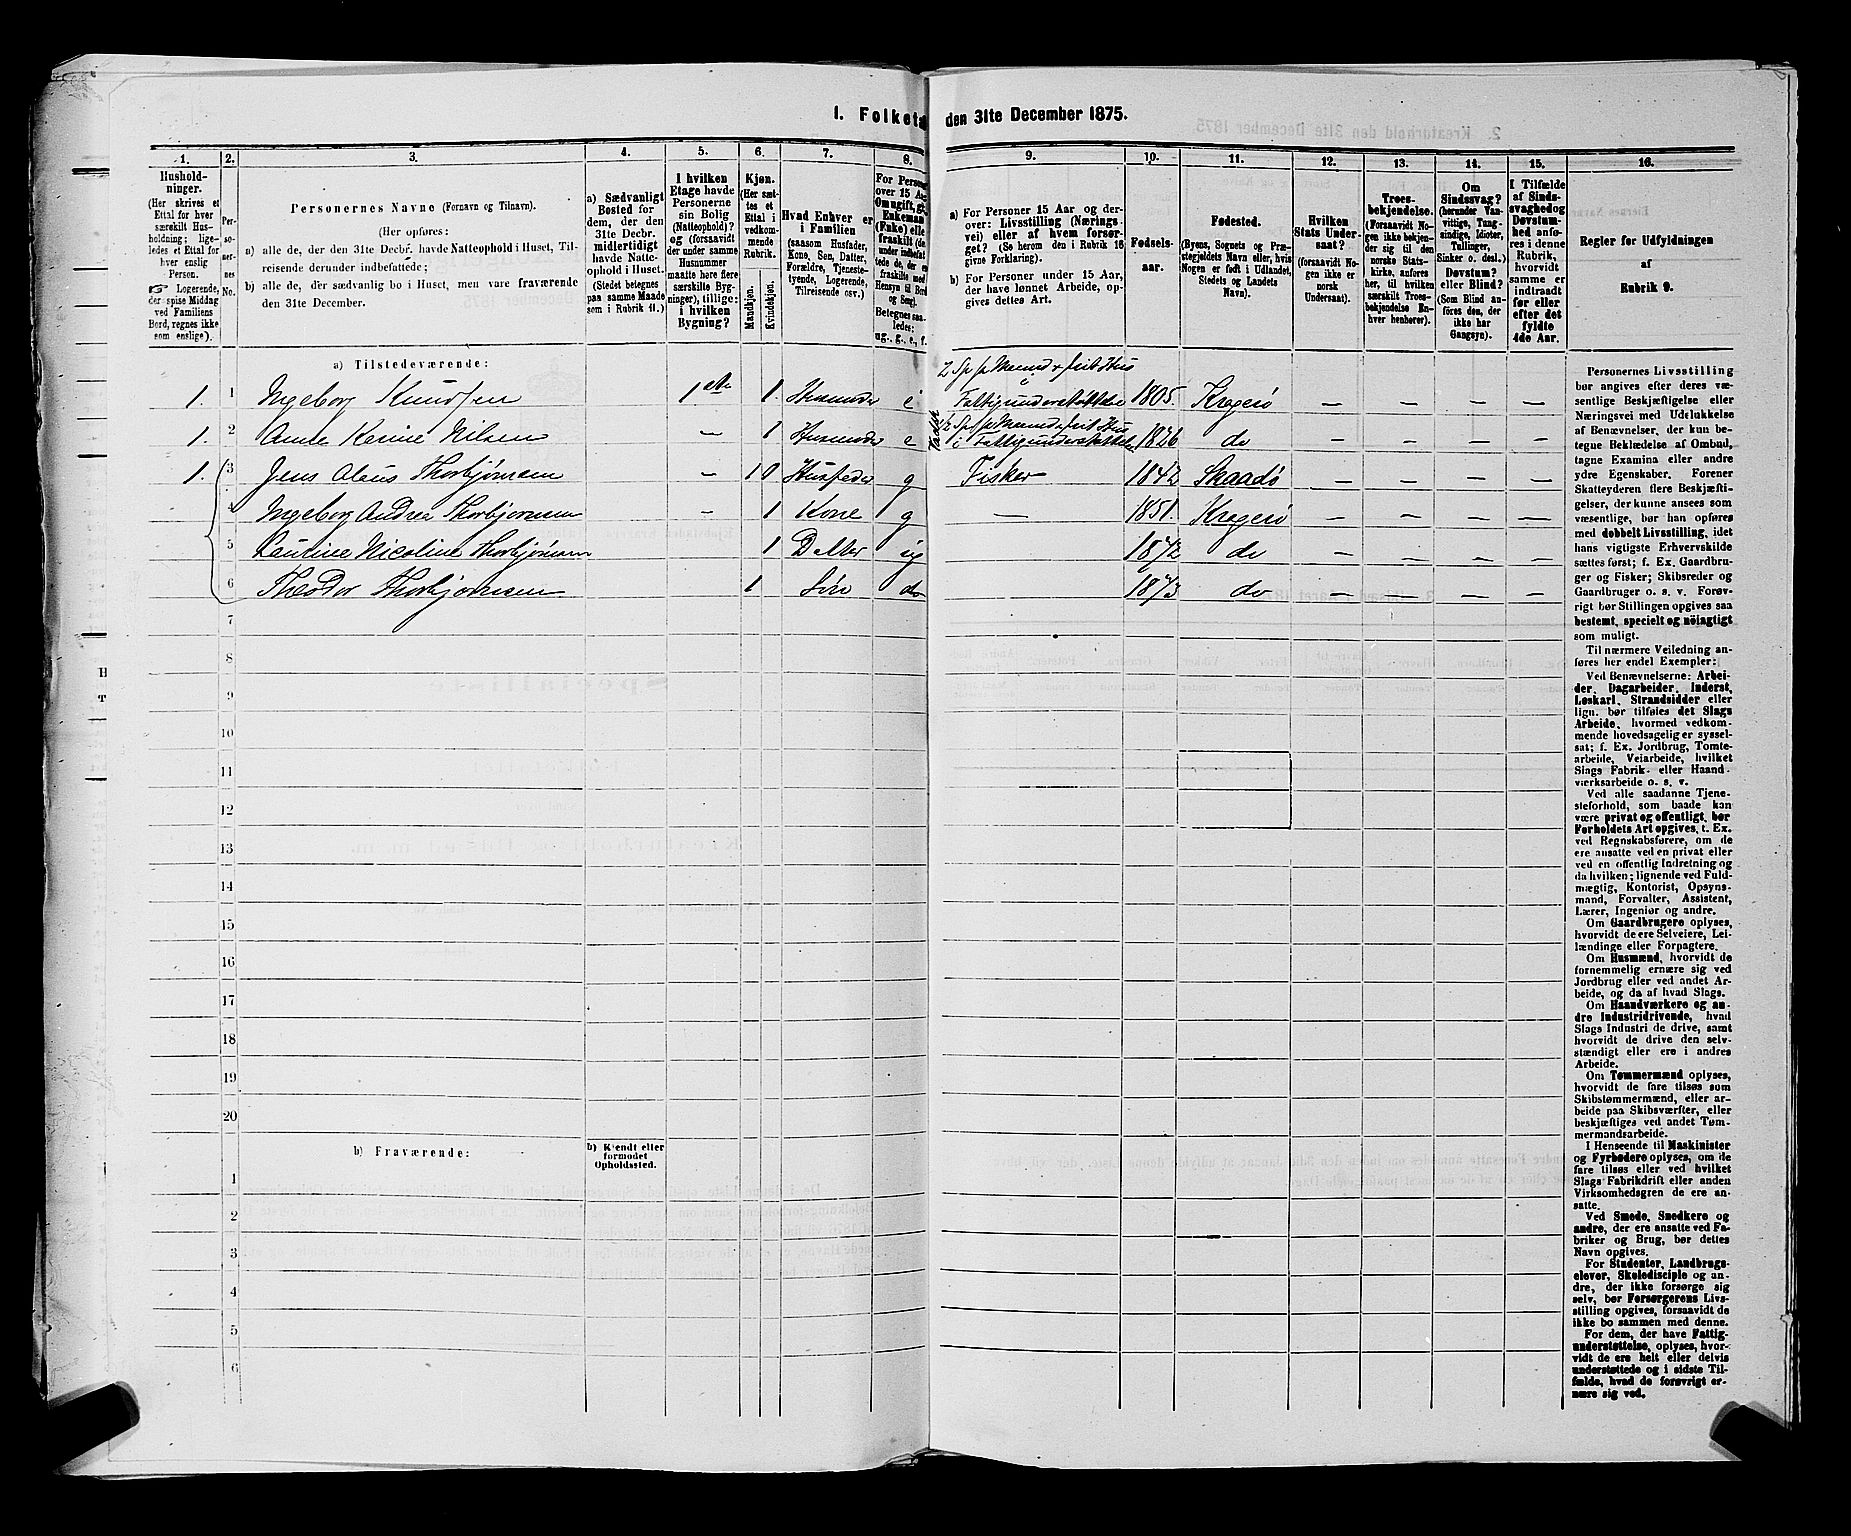 1. Folketæ den 31te December 1875.
1. 2. 3. 4. 5. 6. 7. 8. 9. 10. 11. 12. 13. 14. 15. 16.
Hushold-
ninger.
(Her skrives et
Ettal for hver
særskilt Hus-
holdning; lige-
ledes et Ettal for
hver enslig
Person.
☞ Logerende,
der spise Middag
ved Familiens
Bord, regnes ikke
som enslige).
Per-
so-
ner-
nes
No.
Personernes Navne (Fornavn og Tilnavn).
(Her opføres:
a) alle de, der den 31te Decbr. havde Natteophold i Huset, Til-
reisende derunder indbefattede;
b) alle de, der sædvanlig bo i Huset, men vare fraværende
den 31te December.
a) Sædvanligt
Bosted for
dem, der den
31te Decbr.
midlertidigt
havde Natte-
ophold i Huset.
(Stedet betegnes
paa samme Maade
som i Rubrik 11.)
I hvilken
Etage havde
Personerne
sin Bolig
(Natteophold)?
og (forsaavidt
der under samme
Husnummer
maatte høre flere
særskilte Byg-
ninger), tillige:
i hvilken
Bygning?
Kjøn.
(Her sæt-
tes et
Ettal i
vedkom-
mende
Rubrik.
Mandkjøn.
Kvindekjøn.
Hvad Enhver er
i Familien
(saasom Husfader,
Kone, Søn, Datter,
Forældre, Tjeneste-
tyende, Logerende,
Tilreisende osv.)
For Person
over 15 Aa
Omugift, gi
Enkemand
(Enke) elle
fraskilt (de
under indbefat
tede de, der e
fraskilte med
Hensyn til Bord
og Seng).
Betegnes saa-
ledes:
ug., g., e., f.
a) For Personer 15 Aar og der-
over: Livsstilling (Nærings-
vei) eller af hvem forsør-
get? (Se herom den i Rubrik 16
givne Forklaring).
b) For Personer under 15 Aar,
der have lønnet Arbeide, op-
gives dettes Art.
Fødsels-
aar.
Fødested.
(Byens, Sognets og Præ-
stegjeldets Navn eller, hvis
Nogen er født i Udlandet,
Stedets og Landets
Navn).
Hvilken
Stats Under
saat?
(forsaavidt No-
gen ikke er
norsk
Undersaat).
Troes-
bekjendelse.
(Forsaavidt No-
gen ikke bekjen-
der sig til den
norske Stats-
kirke, anføres
her, til hvilken
særskilt Troes-
bekjendelse En-
hver henhører).
Om
Sindssvag?
(herunder Van-
vittige, Tung-
sindige, Idioter,
Tullinger,
Sinker o. desl.)
Døvstum?
eller Blind?
(Som Blind an-
føres den, der
ikke har
Gangsyn).
I Tilfælde
af Sinds-
svaghed og
Døvstum-
hed anfø-
res i denne
Rubrik,
hvorvidt
samme er
indtraadt
før eller
efter det
fyldte
4de Aar.
Regler for Udfyldningen
af
Rubrik 9.
a) Tilstedeværende:
1. 1 Ingeborg Knudsen 1 1. Husmoder e Fattigunderstøttelse 1805. Kragerø — — — —
1. 2 Karine Nilsen — 1 Husmoder e i Fattigunderstøttelse 1826 do — — — —
1. 3 Jens Olaus Thorbjørnsen — 1 0 Husfader g Fisker 1842 Skaadø — — — —
4 Ingeborg Andrea Thorbjørnsen 1 Kone g — 1851. Kragerø — — — —
5 Laurine Nicoline Thorbjørnsen 1 Datter ug 1872 do — — — —
6 Theodor Thorbjørnsen 1 Søn do 1873 do — — — —
7
8
9
10
11
12
13
14
15
16
17
18
19
20
b) Fraværende:
b) Kjendt eller
formodet
Opholdssted.
1
2
3
4
5
6
Personernes Livsstilling
bør angives efter deres væ-
sentlige Beskjæftigelse eller
Næringsvei med Udelukkelse
af Benævnelser, der kun be-
tegne Beklædelse af Ombud,
tagne Examina eller andre
ydre Egenskaber. Forener
Skatteyderen flere Beskjæfti-
gelser, der kunne ansees som
væsentlige, bør han opføres
med dobbelt Livsstilling, idet
hans vigtigste Erhvervskilde
sættes først; f. Ex. Gaardbru-
ger og Fisker; Skibsreder og
Gaardbruger o. s. v. Forøv-
rigt bør Stillingen opgives saa
bestemt, specielt og nöiagtigt
som muligt.
Til nærmere Veiledning an-
føres her endel Exempler:
Ved Benævnelserne: Arbei-
der, Dagarbeider, Inderst,
Løskarl, Strandsidder eller
lign. bør tilføies det Slags
Arbeide, hvormed vedkom-
mende hovedsagelig er syssel-
sat; f. Ex. Jordbrug, Tomte-
arbeide, Veiarbeide, hvilket
Slags Fabrik- eller Haand-
værksarbeide o. s. v.
Ved alle saadanne Tjene-
steforhold, som baade kan
være privat og offentligt, bør
Forholdets Art opgives, t. Ex.
ved Regnskabsførere, om de
ere ansatte ved en privat eller
ved en offentlig Indretning og
da hvilken; lignende ved Fuld-
mægtig, Kontorist, Opsyns-
mand, Forvalter, Assistent,
Lærer, Ingeniør og andre.
Om Gaardbrugere oplyses,
hvorvidt de ere Selveiere, Lei-
lændinge eller Forpagtere.
Om Husmænd, hvorvidt de
fornemmelig ernære sig ved
Jordbrug eller ved andet Ar-
beide, og da af hvad Slags.
Om Haandværkere og an-
dre Industridrivende, hvad
Slags Industri de drive, samt
hvorvidt de drive den selv-
stændigt eller ere i andres
Arbeide.
Om Tømmermænd oplyses,
hvorvidt de fare tilsøs som
Skibstømmermænd, eller ar-
beide paa Skibsværfter, eller
beskjæftiges ved andet Tøm-
mermandsarbeide.
I Henseende til Maskinister
og Fyrbødere oplyses, om de
fare tilsøs eller ved hvilket
Slags Fabrikdrift eller anden
Virksomhedsgren de ere an-
satte.
Ved Smede, Snedkere og
andre, der ere ansatte ved Fa-
briker og Brug, bør dettes
Navn opgives.
For Studenter, Landbrugs-
elever, Skoledisciple og an-
dre, der ikke forsørge sig
selv, bør Forsørgerens Livs-
stilling opgives, forsaavidt de
ikke bo sammen med denne.
For dem, der have Fattig-
understøttelse, oplyses, hvor-
vidt de ere helt eller delvis
understøttede og i sidste Til-
fælde, hvad de forøvrigt er-
nære sig ved.